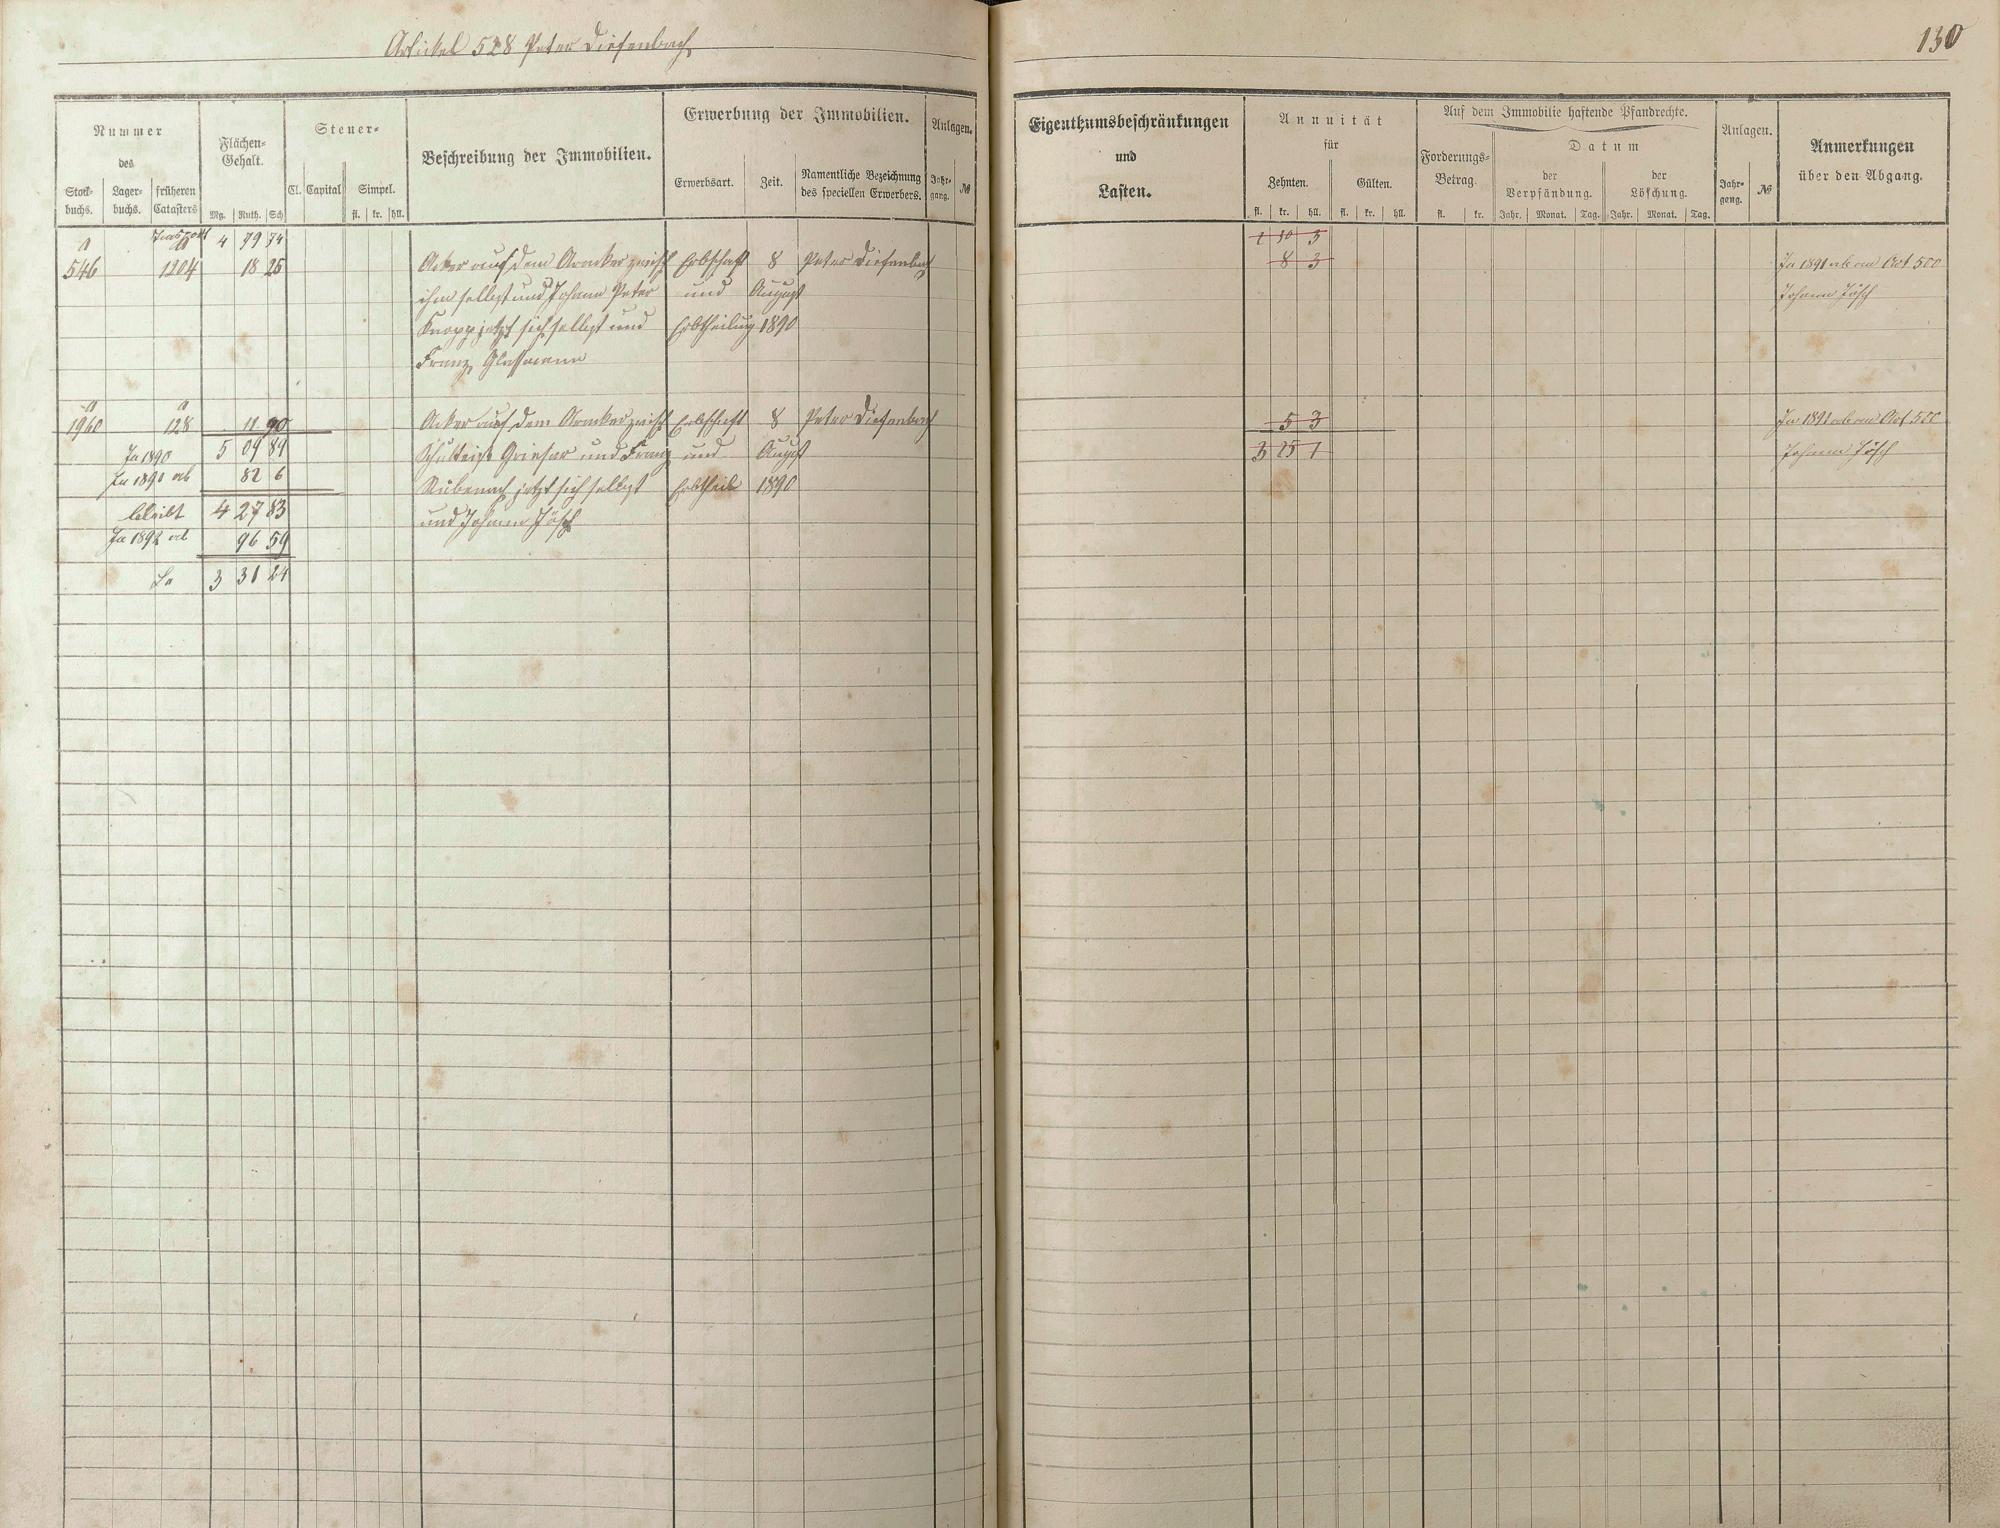 Artikel 528 Peter Diefenbach
130
Nummer
des
Stock-
buchs.
Lager-
buchs.
früheren
Catasters
Flächen-
Gehalt.
Mg. Ruth. Sch
Steuer-
Cl. Capital Simpel.
fl. kr. hll.
Beschreibung der Immobilien.
Erwerbung der Immobilien.
Erwerbsart. Zeit.
Namentliche Bezeichnung
des speciellen Erwerbers.
Anlagen.
Jahr-
gang. №
Eigenthumsbeschränkungen
und
Lasten.
Annuität
für
Zehnten. Gülten.
fl. kr. hll. fl. kr. hll.
Auf dem Immobilie haftende Pfandrechte.
Forderungs-
Betrag.
fl. kr.
Datum
der
Verpfändung.
Jahr. Monat. Tag.
der
Löschung.
Jahr. Monat. Tag.
Anlagen.
Jahr-
gang. №
Anmerkungen
über den Abgang.
Transport 4 79 74
a a
546 1204 18 25 Acker auf dem Aracker zwisch Erbschaft 8 Peter Diefenbach 8 3 In 1891 ab an Art 500
ihm selbst und Johann Peter und August Johann Jösch
Knopp jetzt sich selbst und Erbtheilung 1890
Franz Glassmann
a a
1960 128 11 90 Acker auf dem Aracker zwisch Erbschaft 8 Peter Diefenbach 5 3 In 1891 ab an Art 500
In 1890 5 09 89 Schulteis Griesar und Franz und August 3 25 1 Johann Jösch
In 1891 ab 82 6 Rubenach jetzt sich selbst Erbtheil 1890
bleibt 4 27 83 und Johann Jösch
In 1892 ab 96 59
3 31 24